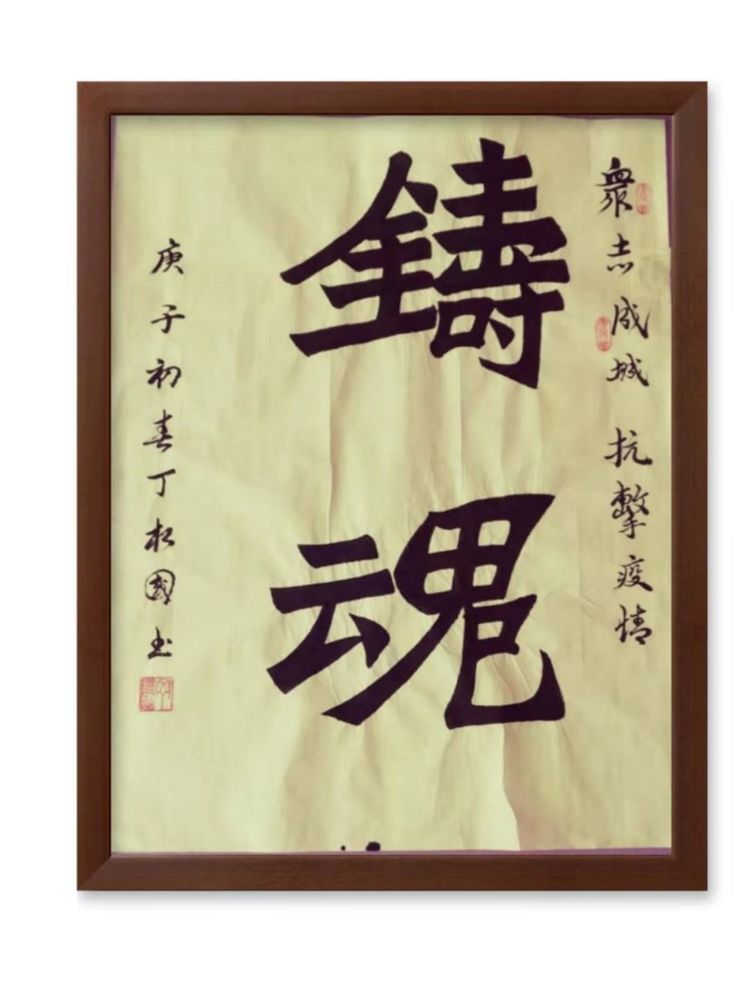 衆志成城 抗擊疫情
鑄魂
庚子初春丁松國书